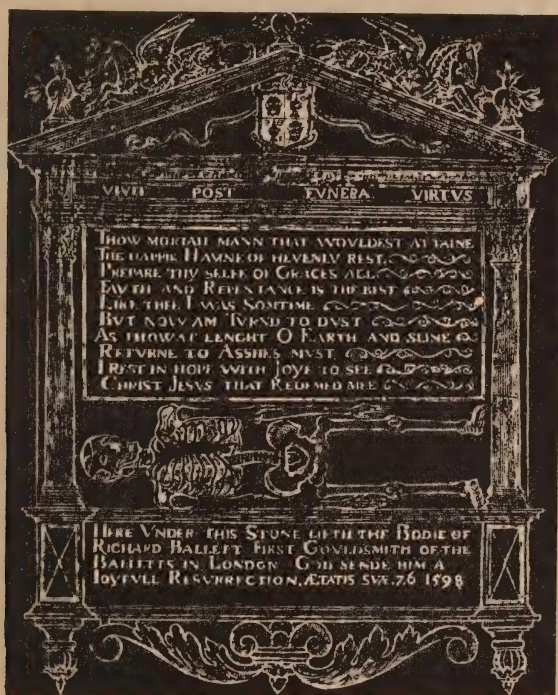 VIVIT POST FVNERA VIRTVS
THOW MORTALL MANN THAT WOVLDEST ATTAINE
THE HAPPIE HAVNE OF HEVENLY REST,
PREPARE THY SELFE OF GRACES ALL
FAYTH AND REPENTANCE IS THE BEST
LIKE THEE I WAS SOMTIME
BUT NOW AM TVRND TO DVST
AS THOW AT LENGHT O EARTH AND SLINE
RETVRNE TO ASSHES MVST
I REST IN HOPE WITH JOYE TO SEE
CHRIST JESVS THAT REDEMED MEE
HERE VNDER THIS STONE LIETH THE BODIE OF
RICHARD BALLETT FIRST GOVLDSMITH OF THE
BALLETTS IN LONDON GOD SENDE HIM A
IOYFVLL RESVRRECTION, ÆTATIS SVÆ. 76 1598